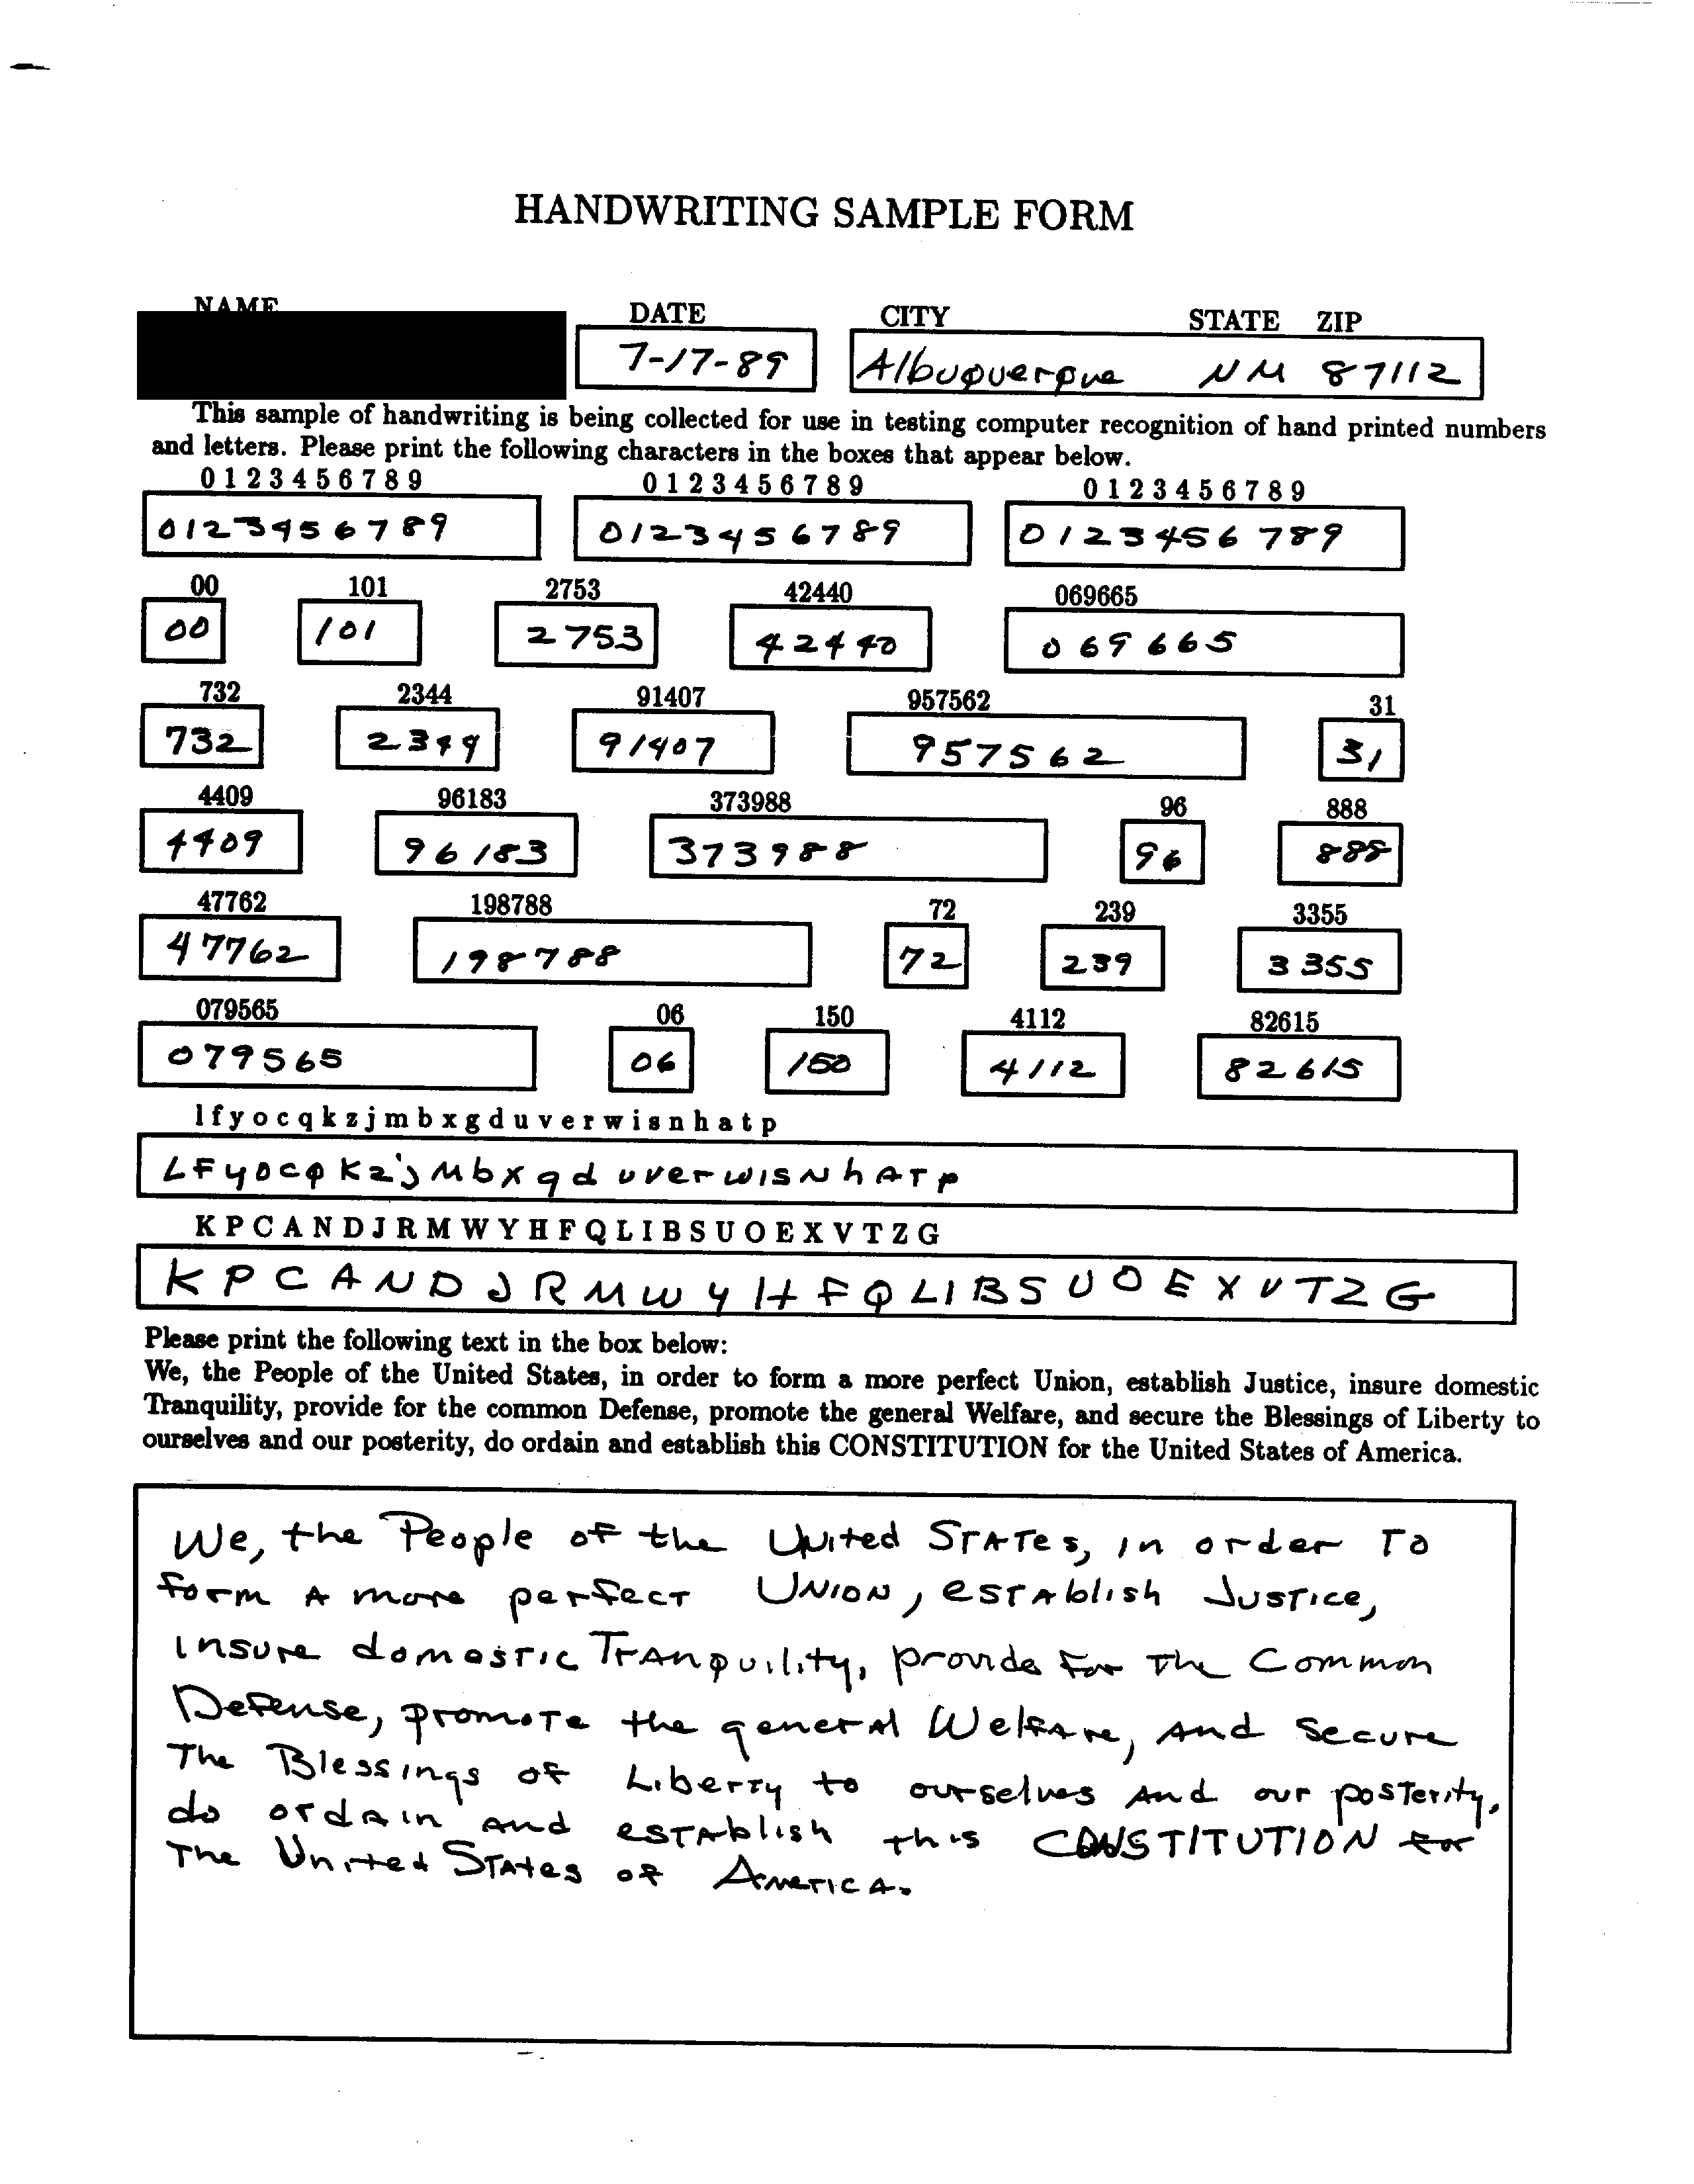 HANDWRITING SAMPLE FORM
NAME DATE CITY STATE ZIP
7-17-89 Albuquerque NM 87112
This sample of handwriting is being collected for use in testing computer recognition of hand printed numbers
and letters. Please print the following characters in the boxes that appear below.
0 1 2 3 4 5 6 7 8 9 0 1 2 3 4 5 6 7 8 9 0 1 2 3 4 5 6 7 8 9
0123456789 0123456789 0123456789
00 101 2753 42440 069665
00 101 2753 42440 069665
732 2344 91407 957562 31
732 2344 91407 957562 31
4409 96183 373988 96 888
4409 96183 373988 96 888
47762 198788 72 239 3355
47762 198788 72 239 3355
079565 06 150 4112 82615
079565 06 150 4112 82615
l f y o c q k z j m b x g d u v e r w i s n h a t p
LFyOcqKzjMbxgduverwISNhATp
K P C A N D J R M W Y H F Q L I B S U O E X V T Z G
K P C A N D J R M W Y H F Q L I B S U O E X V T Z G
Please print the following text in the box below:
We, the People of the United States, in order to form a more perfect Union, establish Justice, insure domestic
Tranquility, provide for the common Defense, promote the general Welfare, and secure the Blessings of Liberty to
ourselves and our posterity, do ordain and establish this CONSTITUTION for the United States of America.
We, the People of the United STATes, in order To
form A more perfect UNION, esTAblish JusTice,
insure domesTic TrANquility, provide for The Common
Defense, promoTe the generAl WelfAre, And secure
The Blessings of LiberTy to ourselves And our posTerity,
do ordAin and esTAblish this CONSTITUTION for
The United STAtes of AmericA.